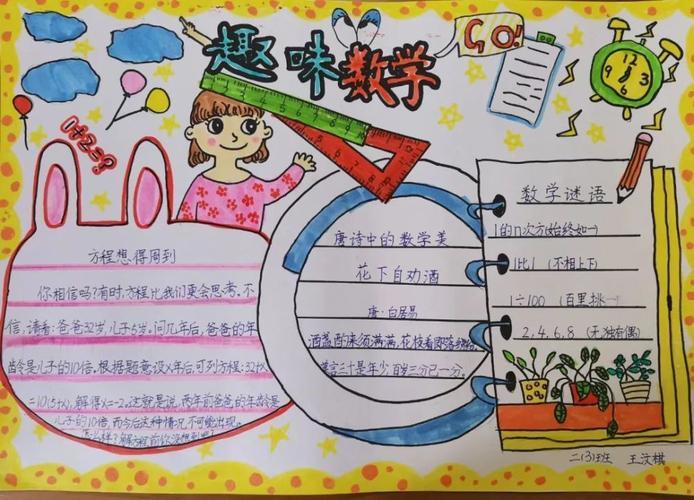 趣味数学
GO!
1+2=?
方程想得周到
你相信吗?有时,方程比我们更会思考。不
信,请看:爸爸32岁,儿子5岁。问几年后,爸爸的年
龄是儿子的10倍。根据题意设x年后,可列方程:32+x
=10(5+x),解得x=-2。这就是说,两年前爸爸的年龄是
儿子的10倍,而今后这种情况不可能出现。
怎么样?解方程前你没想到吧?
唐诗中的数学美
花下自劝酒
唐·白居易
酒盏酌来须满满,花枝看即落纷纷。
莫言三十是年少,百岁三分已一分。
数学谜语
1的n次方(始终如一)
1比1(不相上下)
1÷100(百里挑一)
2,4,6,8(无独有偶)
二(3)班 王汶棋